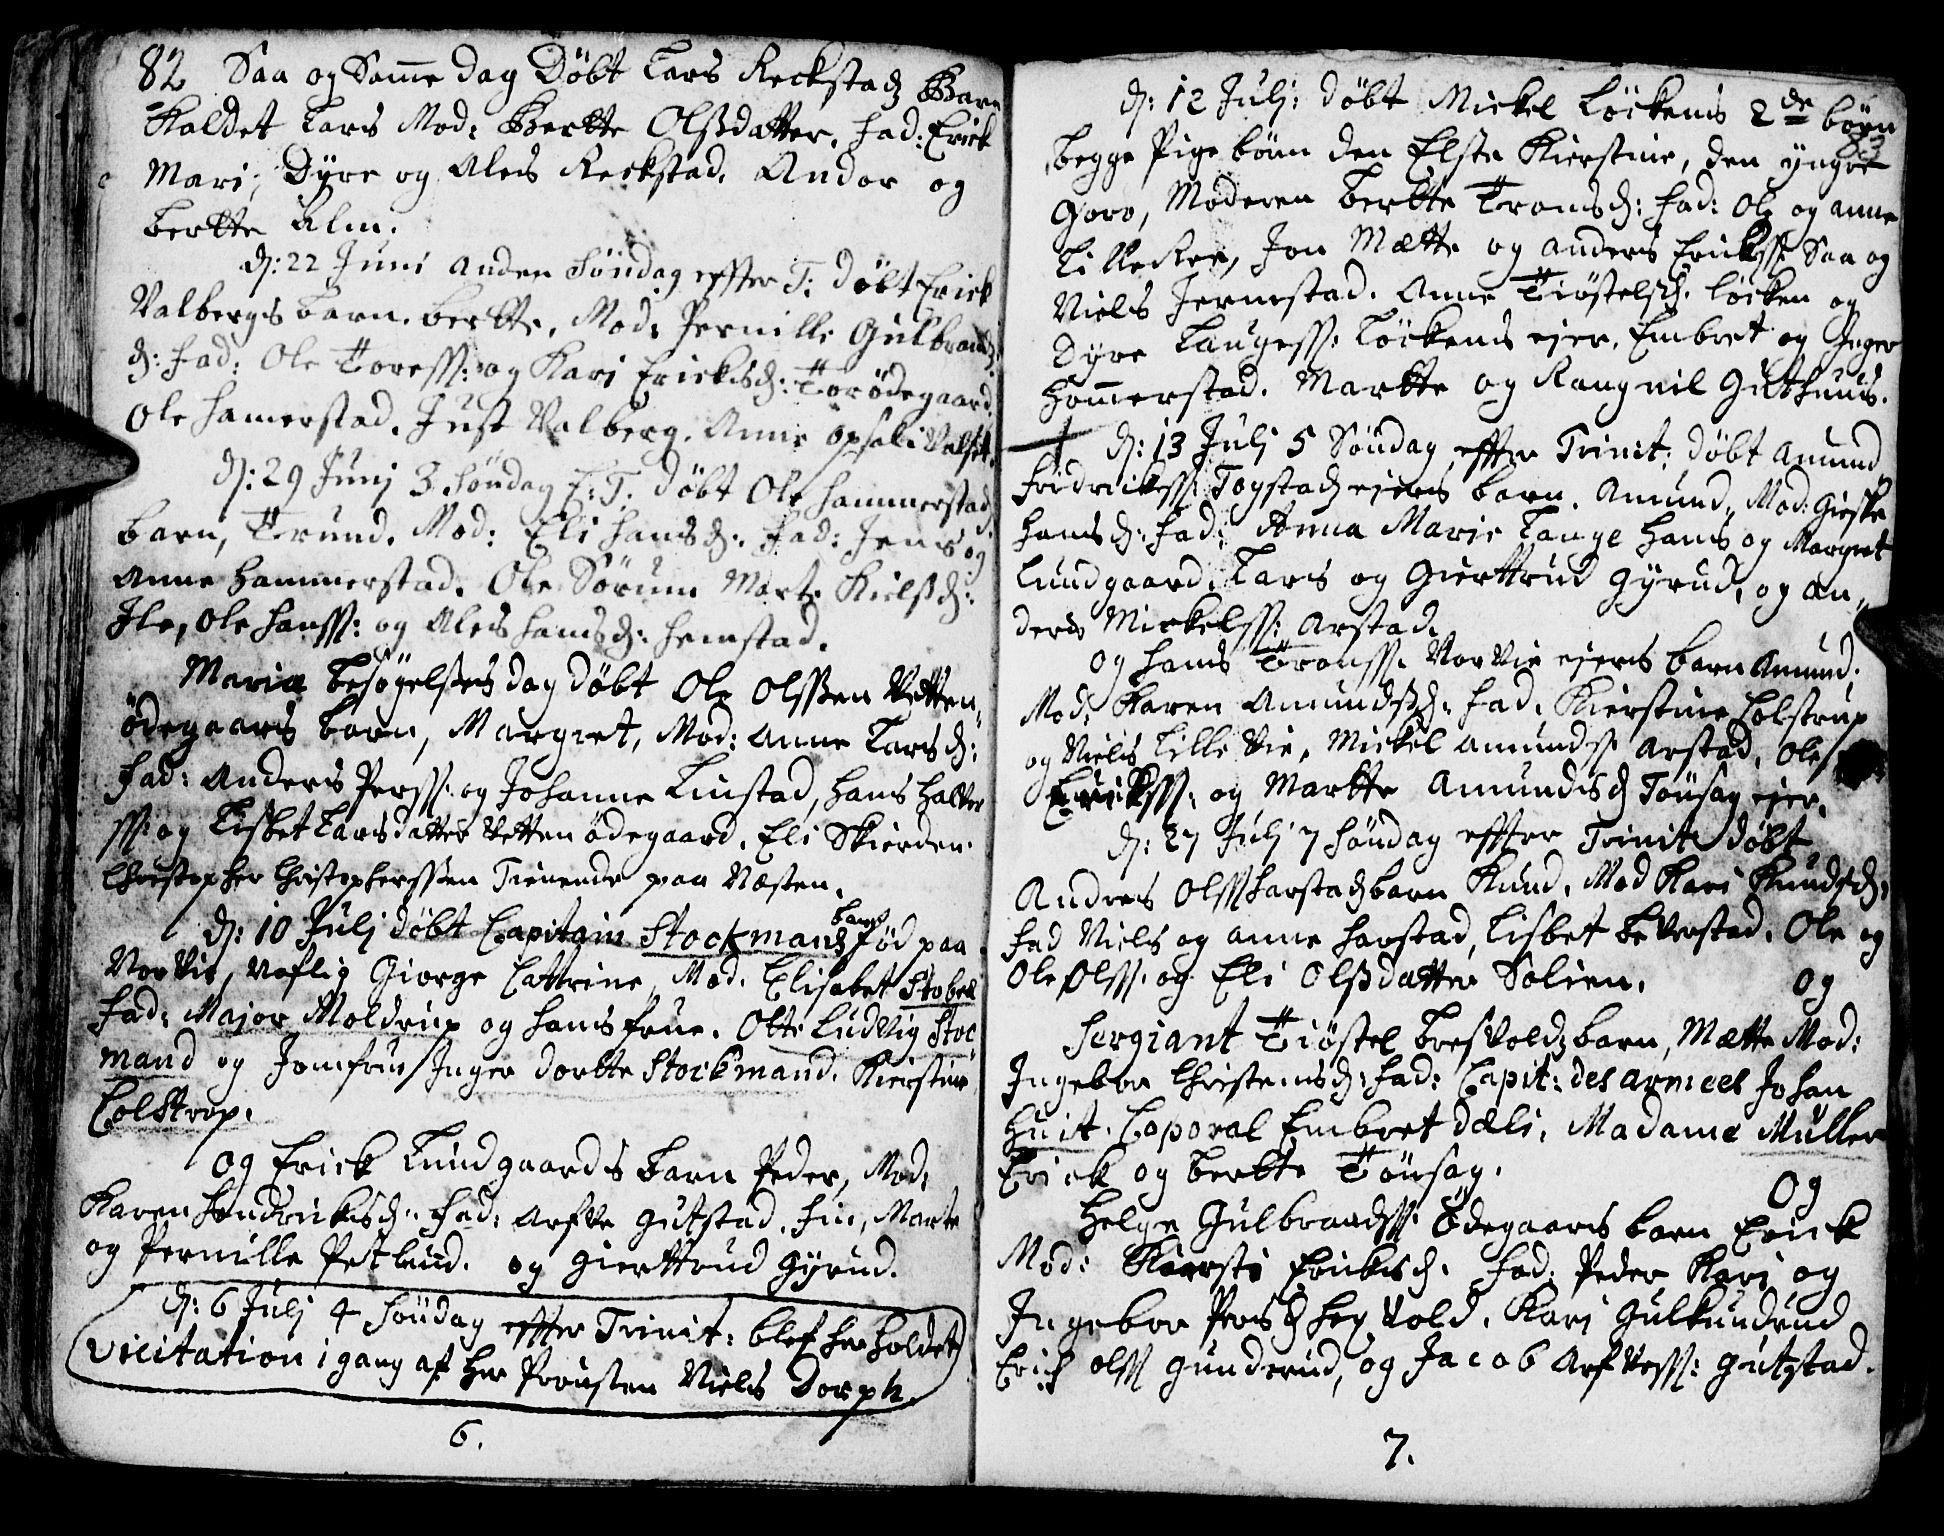 82 Saa og Samme dag Döbt Lars Reckstad Barn
Kaldet Lars Mod: Berthe Olsdatter. Fad: Erick
Mari, Dyre og Aleis Reckstad. Andor og
Berthe Alm.
d: 22 Juni anden Söndag effter T: döbt Erick
Valbergs Barn. Berthe. Mod: Pernille Gulbrands
d: Fad: Ole Toress: og Kari Ericksd: Torödegaard
Ole Hamerstad. Just Valberg. Anne Opsal i Valset.
d: 29 Junj 3 Söndag E: T. döbt Ole Hammerstad
barn, Trund. Mod: Eli Hansd. Fad: Jens og
Anne Hammerstad. Ole Sörum Marte Kielsd:
Ile, Ole Hanss: og Aleis Hansd: Hemstad.
Mariæ Besögelses dag döbt Ole Olssen Vetten
ödegaars barn, Margret, Mod: Anne Larsd:
Fad: Anders Perss: og Johanne Linstad, Hans Halvor
ss: og Lisbet Larsdatter Vetten ödegaard. Eli Skierden.
Christopher Christopherssen Tienende paa Næsten.
d: 10 Julj döbt Capitain Stockmans barn föd paa
Vor Vie, naflig Giorge Cattrine, Mod. Elisabet Stobel
Fad: Major Moldrup og hans frue. Otte Ludvig Stoc
mand og Jomfru Inger Dorthe Stockmand. Kierstine
Colstrop.
Og Erick Lundgaards barn Peder, Mod:
Karen Hendricksd: Fad: Arfve Gutstad. Siri, Marte
og Pernille Petlund. og Gierttrud Gyrud.
d: 6 Julj 4 Söndag effter Trinit: blef her holdet
Vicitation i gang af Her Prousten Niels Dorph
6.
d: 12 Julj: döbt Mickel Löckens 2de börn
83
begge Pige börn den Elste Kierstine, den yngre
Goro, Moderen Berthe Tronsd: Fad: Ole og Anne
Lille Ree, Jon Mætte og Anders Erickss: Saa og
Niels Jernestad. Anne Tiöstelsd. Löcken og
Dyre Laugess: Löckens ejer. Embret og Inger
Hommerstad. Marthe og Rangnil Guthuus.
d: 13 Julj 5 Söndag effter Trinit: döbt Amund
Fridrickss: Togstad ejers barn. Amund, Mod: Giöske
Hansd: Fad: Anna Marie Lange Hans og Margret
Lundgaard. Lars og Gierttrud Gyrud, og An-
ders Mickelss: Arstad.
Og Hans Tronss. Vor Vie ejers barn Amund.
Mod: Karen Amundsd: Fad. Kierstine Colstrup
og Niels Lille Vie, Mickel Amunds: Arstad. Ole
Erickss: og Marthe Amundsd Tönsag ejer.
d: 27 Julj 7 Söndag effter Trinit: döbt
Andres Olss Harstad barn Knud. Mod Kari Knudsd.
Fad Niels og Anne Harstad, Lisbet Beverstad. Ole og
Ole Olss: og Eli Olsdatter Solien.
Og
Sergiant Tiöstel Bresvold barn, Mætte Mod:
Ingebor Christensd: Fad: Capit: des armees Johan
Huit. Caporal Embret Dæli. Madame Muller
Erick og Berthe Tönsag.
Og
Helge Gulbrandss: Ödegaars barn Erick
Mod: Kiersti Ericksd. Fad: Peder Kari og
Ingebor Prosd Hex Vold. Kari Gulkundrud
Erich Olss Gunderud, og Jacob Arfvess: Gutzstad.
7.